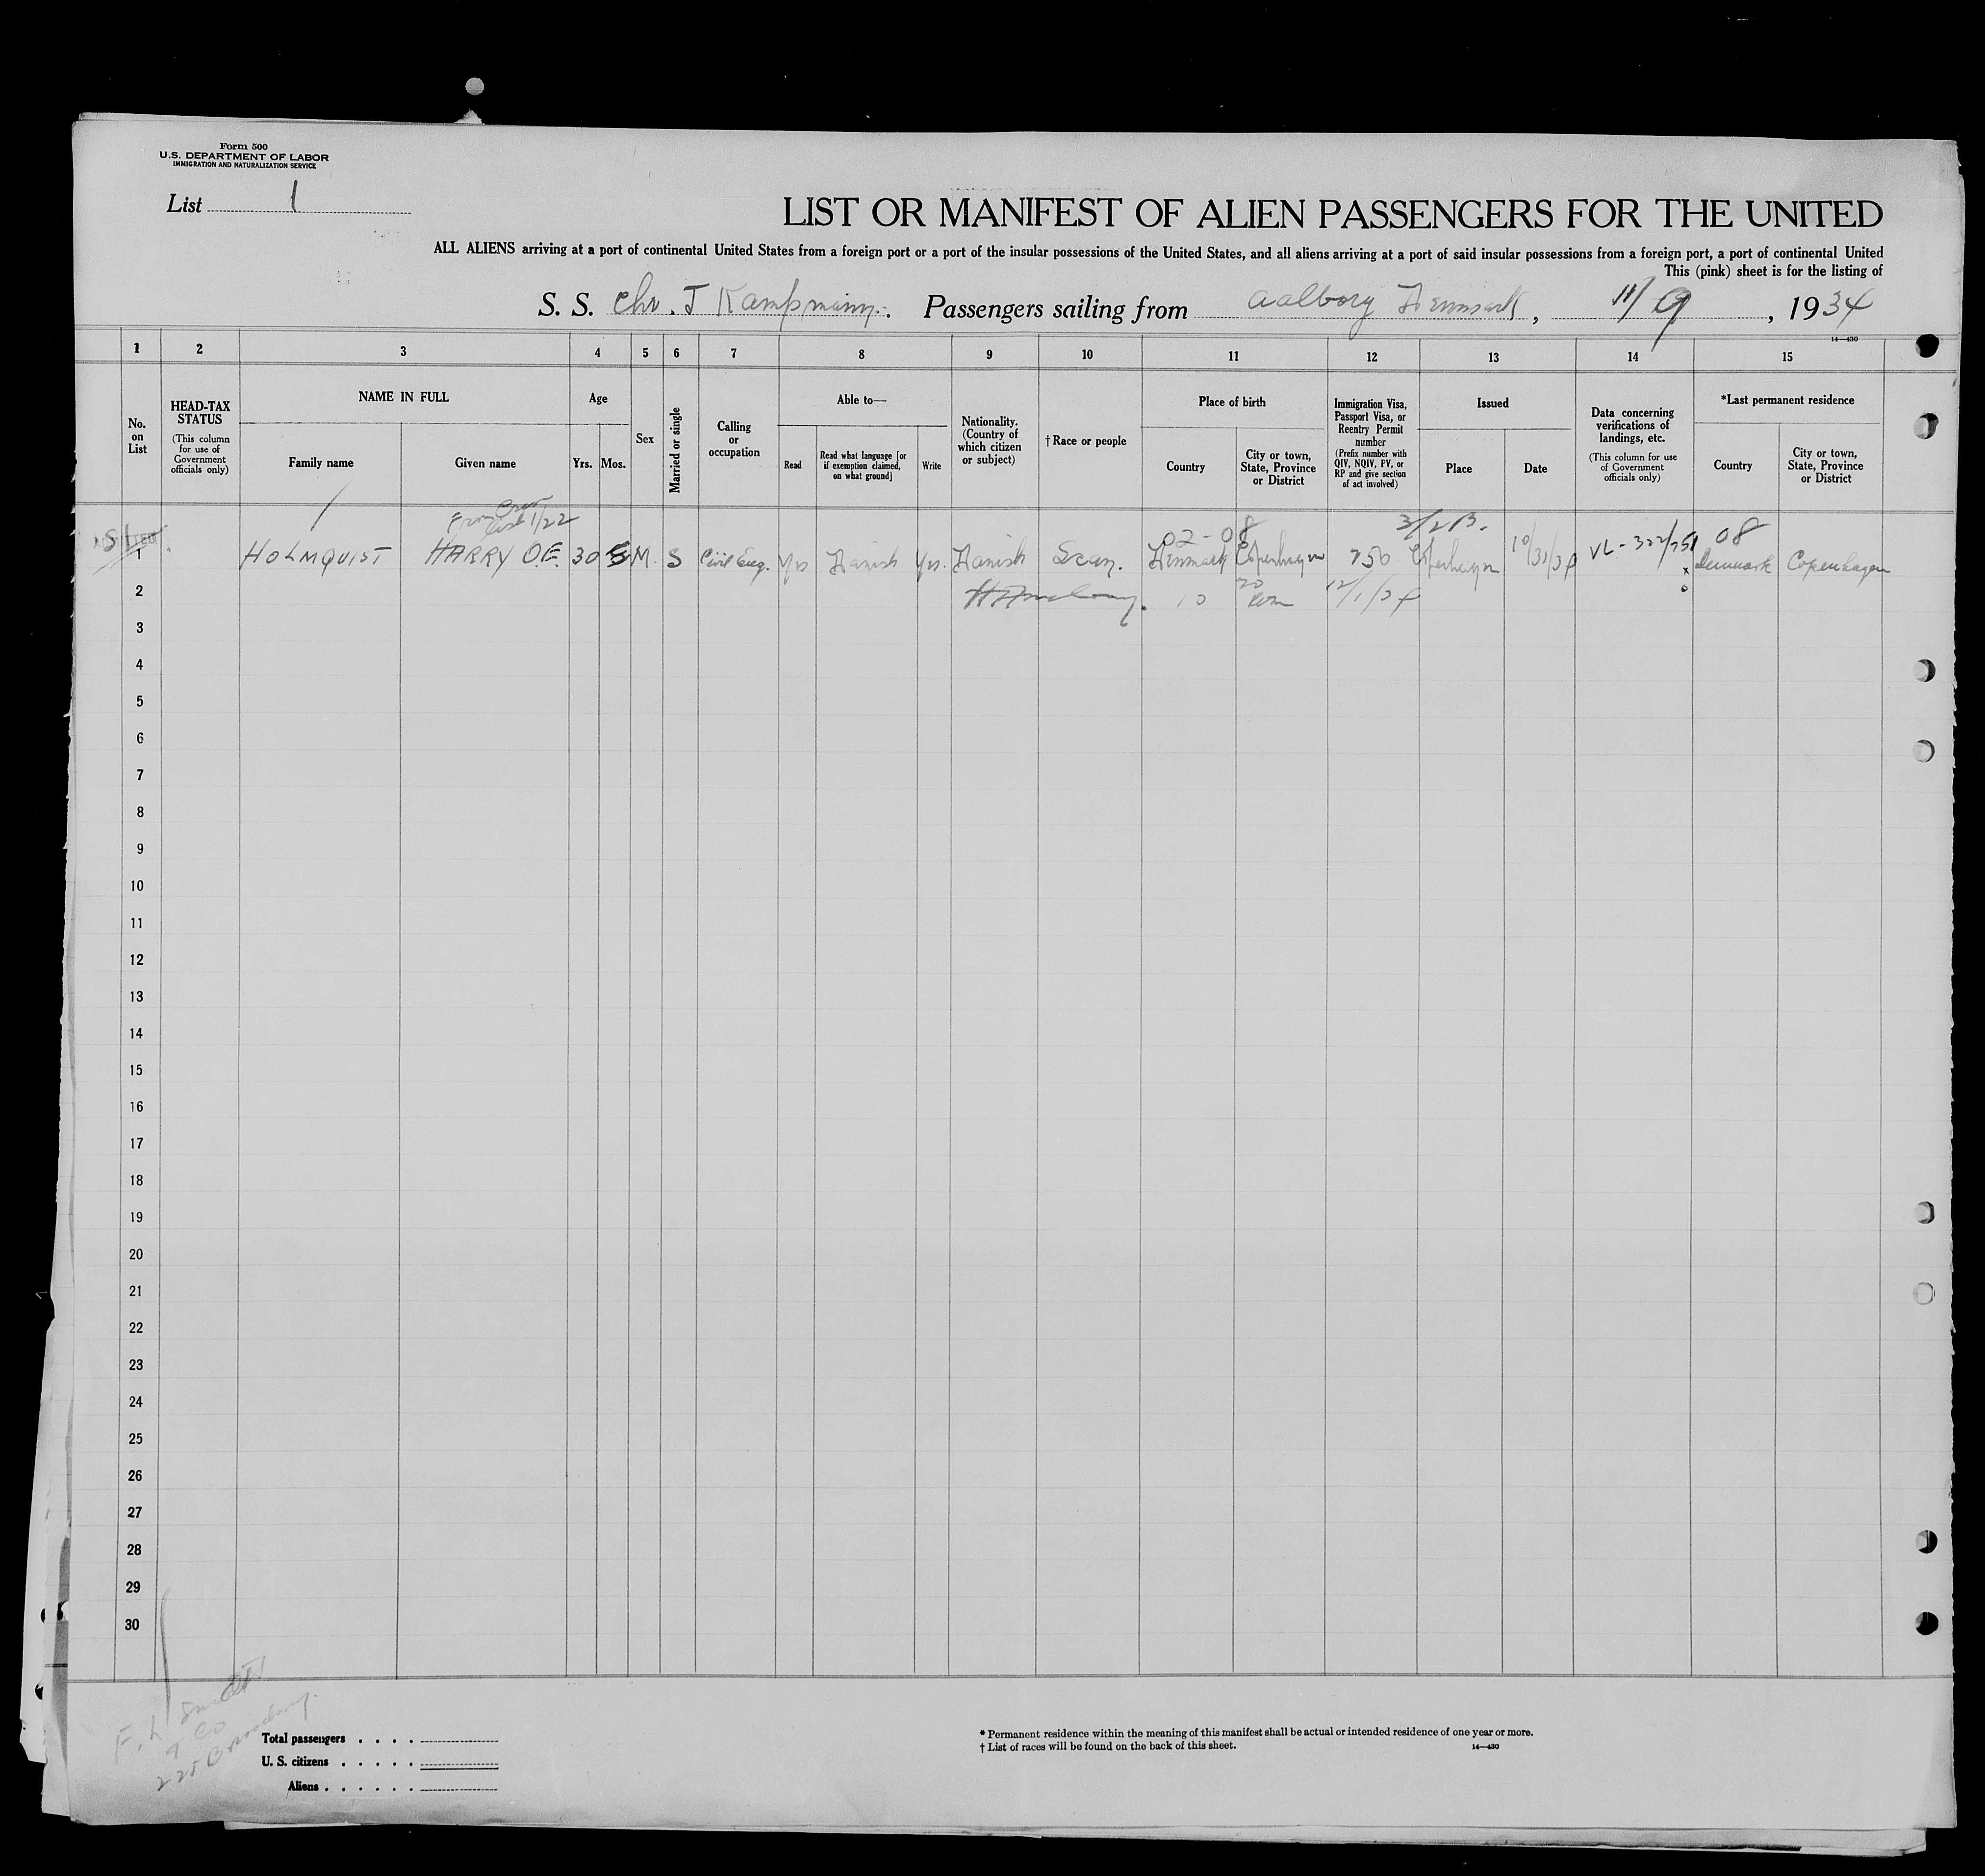 Form 500
U.S. DEPARTMENT OF LABOR
IMMIGRATION AND NATURALIZATION SERVICE
List 1
LIST OR MANIFEST OF ALIEN PASSENGERS FOR THE UNITED
ALL ALIENS arriving at a port of continental United States from a foreign port or a port of the insular possessions of the United States, and all aliens arriving at a port of said insular possessions from a foreign port, a port of continental United
This (pink) sheet is for the listing of
S. S. Chr. J Kampmann. Passengers sailing from Aalborg Denmark, 11/9, 1934
14—430
1 2 3 4 5 6 7 8 9 10 11 12 13 14 15
No. on List
HEAD-TAX STATUS (This column for use of Government officials only)
NAME IN FULL
Family name
Given name
Age
Yrs. Mos.
Sex
Married or single
Calling or occupation
Able to—
Read
Read what language [or if exemption claimed, on what ground]
Write
Nationality. (Country of which citizen or subject)
†Race or people
Place of birth
Country
City or town, State, Province or District
Immigration Visa, Passport Visa, or Reentry Permit number (Prefix number with QIV, NQIV, PV, or RP and give section of act involved)
Issued
Place
Date
Data concerning verifications of landings, etc. (This column for use of Government officials only)
*Last permanent residence
Country
City or town, State, Province or District
1/22 02-08 08
1 HOLMQUIST HARRY O.E. 30 M. S Civil Eng. Yes Danish Yes. Danish Scan. Denmark Copenhagen 750 Copenhagen 10/31/34 Denmark Copenhagen
2 10 20 12/1/34
3
4
5
6
7
8
9
10
11
12
13
14
15
16
17
18
19
20
21
22
23
24
25
26
27
28
29
30
F. L. Co
225 Broadway.
Total passengers . . . .
U. S. citizens . . . . .
Aliens . . . . . .
* Permanent residence within the meaning of this manifest shall be actual or intended residence of one year or more.
† List of races will be found on the back of this sheet.
14—430